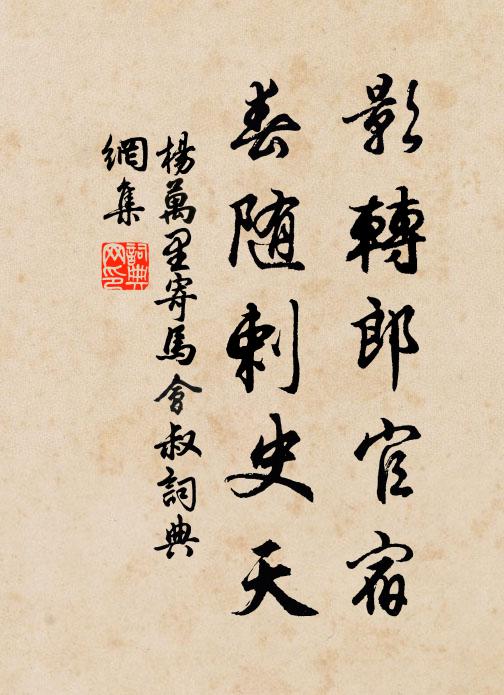 影轉郎官宿
春随刺史天
楊萬里寄馬會叔詞典
網集
詞典
网印